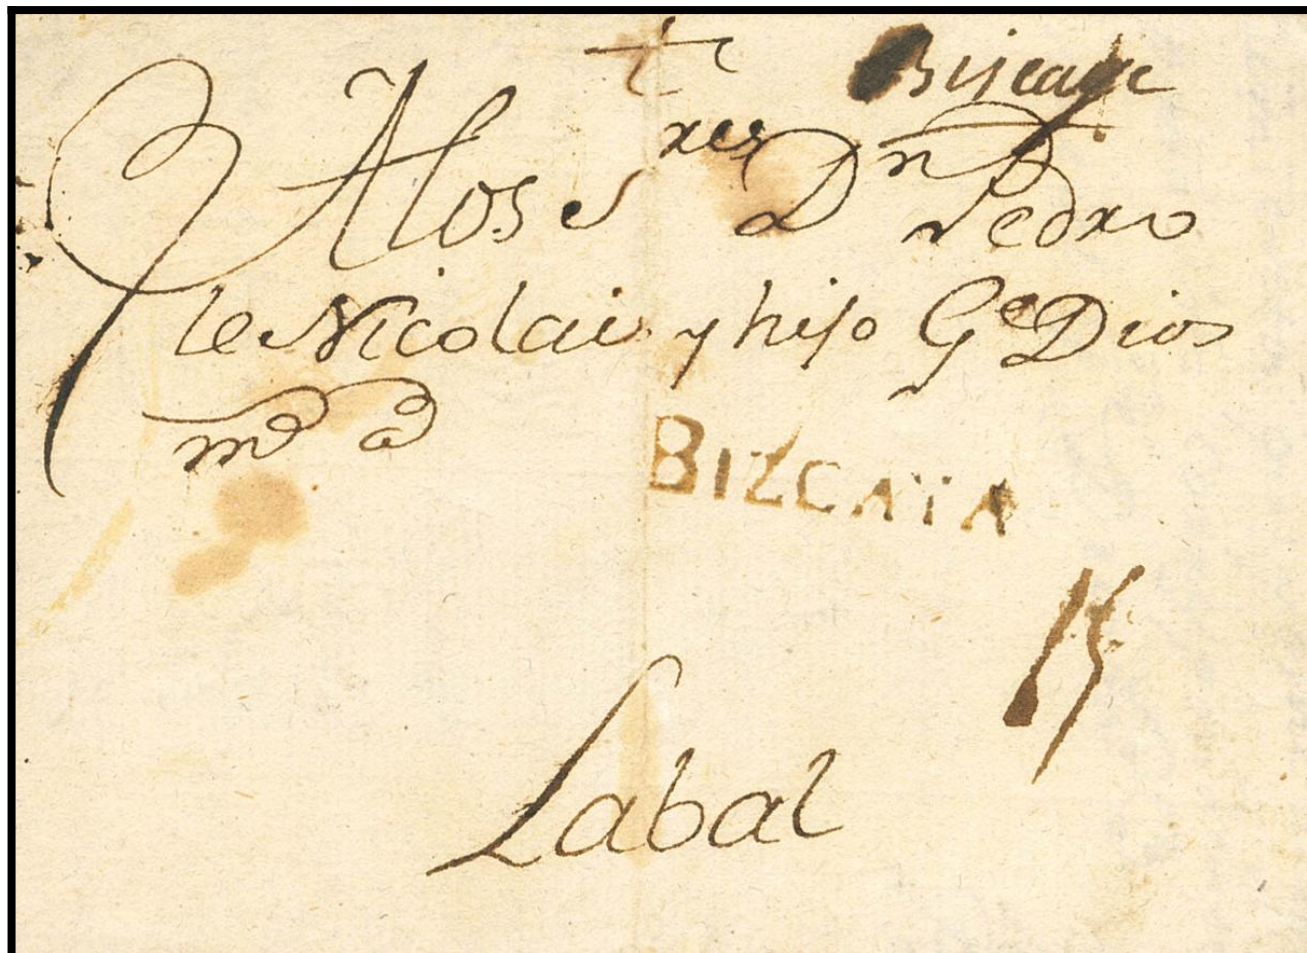 Biscaye
A los S.res D.n Pedro
le Nicolai y hijo G.e Dios
m.s a.s
BIZCAYA
15
Labal